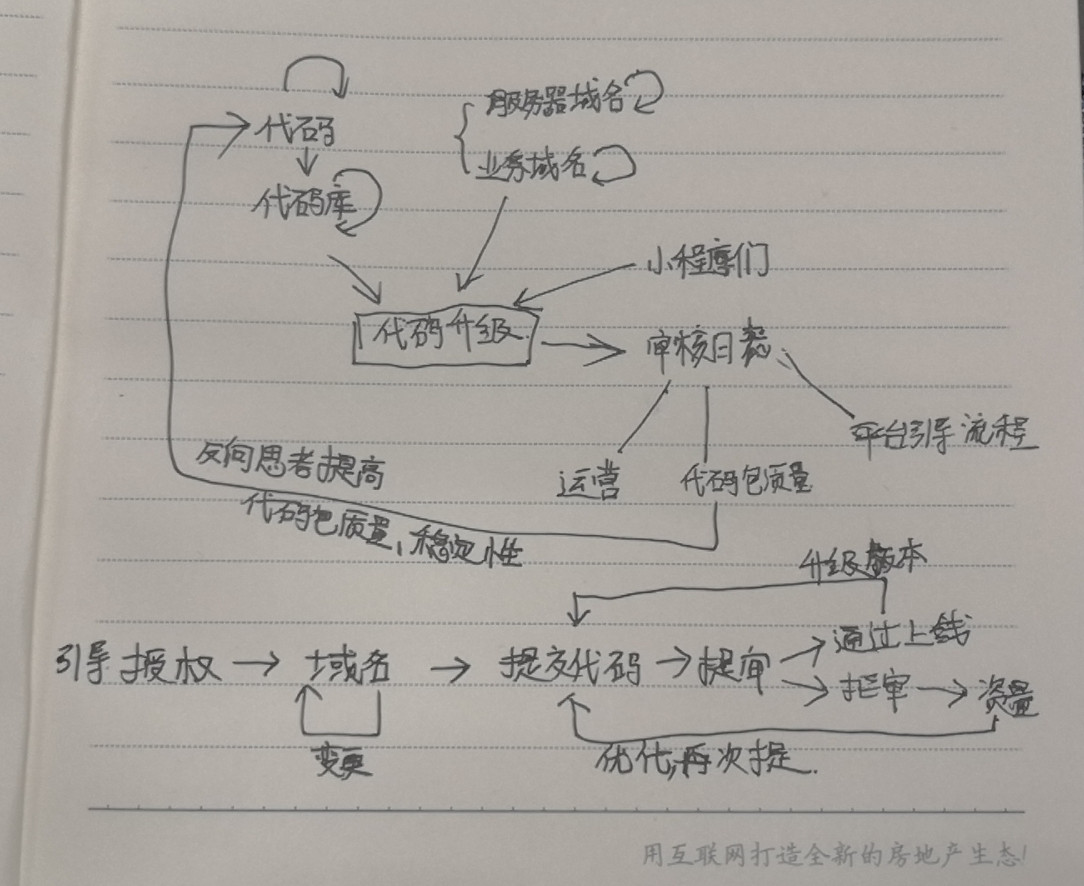 服务器域名
代码
业务域名
代码库
小程序们
代码升级
审核日志
平台引导流程
反向思考提高
运营
代码包质量
代码包质量、稳定性
升级版本
通过上线
引导授权
域名
提交代码
提审
拒审
变更
优化,再次提.
用互联网打造全新的房地产生态!